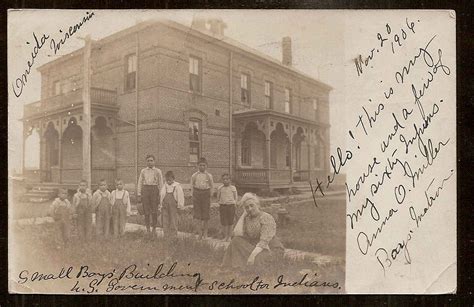 Oneida
Wisconsin
Nov. 20
1906.
Hello! This is my
house and a few of
my sixty Indians.
Anna O. Miller
Boys' Matron.
Small Boys' Building
U.S. Government School for Indians